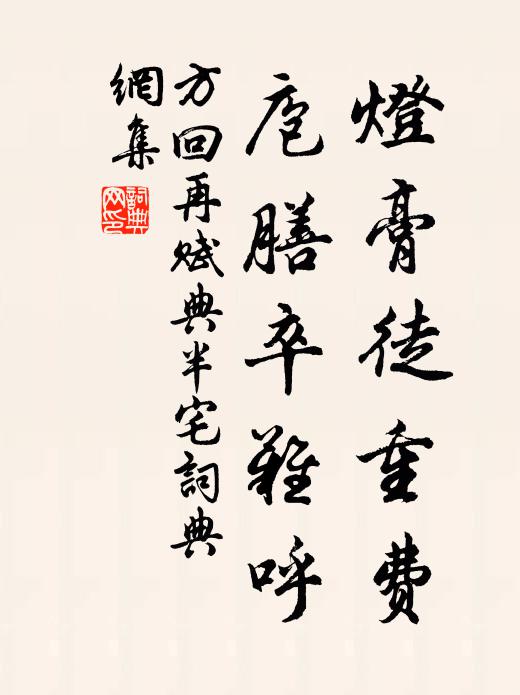 燈膏徒重费
庖膳卒難呼
方回再赋典半宅詞典
網集
詞典
网印